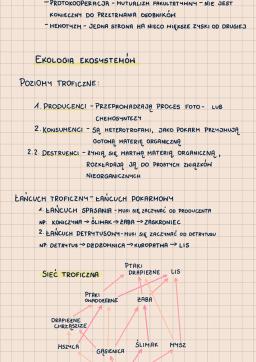 - PROTOKOOPERACJA - MUTUALIZM FAKULTATYWNY - NIE JEST
KONIECZNY DO PRZETRWANIA OSOBNIKÓW
- HEMOTYZM - JEDNA STRONA MA NIECO WIĘKSZE ZYSKI OD DRUGIEJ
EKOLOGIA EKOSYSTEMÓW
POZIOMY TROFICZNE:
1. PRODUCENCI - PRZEPROWADZAJĄ PROCES FOTO- LUB
CHEMOSYNTEZY
2. KONSUMENCI - SĄ HETEROTROFAMI, JAKO POKARM PRZYJMUJĄ
GOTOWĄ MATERIĘ ORGANICZNĄ
2.2. DESTRUENCI - ŻYWIĄ SIĘ MARTWĄ MATERIĄ ORGANICZNĄ,
ROZKŁADAJĄ JĄ DO PROSTYCH ZWIĄZKÓW
NIEORGANICZNYCH
ŁAŃCUCH TROFICZNY - ŁAŃCUCH POKARMOWY
1. ŁAŃCUCH SPASANIA - MUSI SIĘ ZACZYNAĆ OD PRODUCENTA
NP: KONICZYNA → ŚLIMAK → ŻABA → ZASKRONIEC
2. ŁAŃCUCH DETRYTUSOWY - MUSI SIĘ ZACZYNAĆ OD DETRYTUSU
NP: DETRYTUS → DŻDŻOWNICA → KUROPATWA → LIS
SIEĆ TROFICZNA
PTAKI
DRAPIEŻNE
LIS
PTAKI
OWADOŻERNE
ŻABA
DRAPIEŻNE
CHRZĄSZCZE
MSZYCA
GĄSIENICA
ŚLIMAK
MYSZ